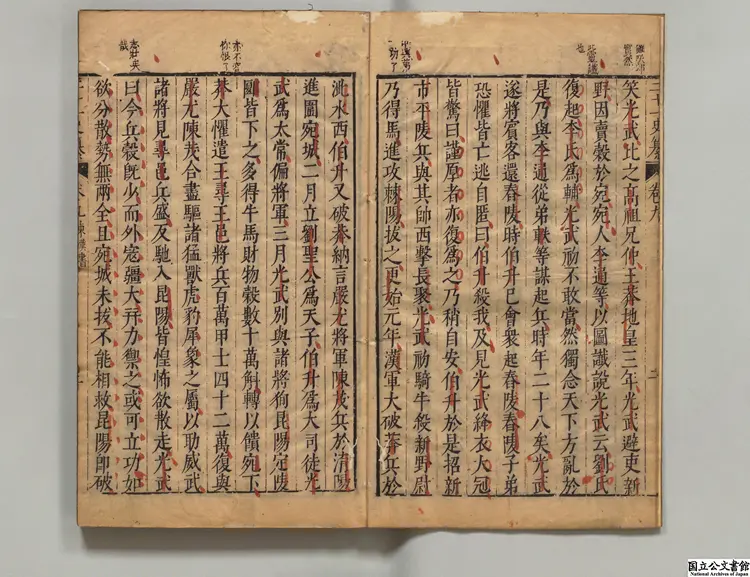 笑光武比之高祖兄仲王莽地皇三年光武避吏新
野因賣穀於宛宛人李通等以圖讖說光武云劉氏
復起李氏爲輔光武初不敢當然獨念天下方亂於
是乃與李通從弟軼等謀起兵時年二十八矣光武
遂將賓客還舂陵時伯升已會衆起舂陵舂陵子弟
恐懼皆亡逃自匿曰伯升殺我及見光武絳衣大冠
皆驚曰謹厚者亦復爲之乃稍自安伯升於是招新
市平陵兵與其帥西擊長聚光武初騎牛殺新野尉
乃得馬進攻棘陽拔之更始元年漢軍大破莽兵於
泚水西伯升又破莽納言嚴尤將軍陳茂兵於淯陽
進圍宛城二月立劉聖公爲天子伯升爲大司徒光
武爲太常偏將軍三月光武別與諸將狥昆陽定陵
郾皆下之多得牛馬財物穀數十萬斛轉以饋宛下
莽大懼遣王尋王邑將兵百萬甲士四十二萬復與
嚴尤陳茂合盡驅諸猛獸虎豹犀象之屬以助威武
諸將見尋邑兵盛反馳入昆陽皆惶怖欲散走光武
曰今兵穀旣少而外宼疆大幷力禦之或可立功如
欲分散勢無兩全且宛城未拔不能相救昆陽卽破
卷九
二
国立公文書館
National Archives of Japan